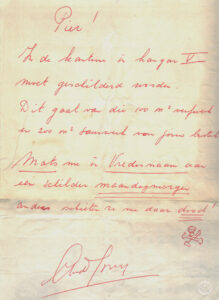 Pier!
In de kantine in hangar V
moet geschilderd worden.
Dit gaat van die 100 m² verfwerk
en 200 m² van jouw
Mats me in Vredesnaam aan
een schilder maandagmorgen
anders schieten ze me daar dood!